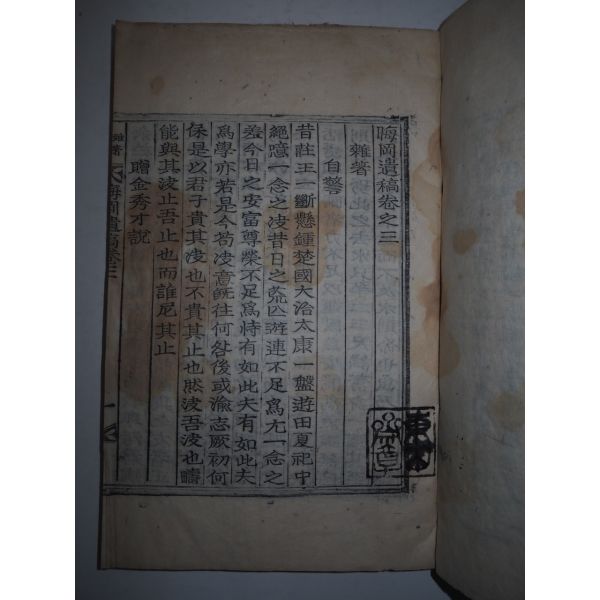 晦岡遺稿卷之三
雜著
自警
昔莊王一斷懸鍾楚國大治太康一盤遊田夏祀中
絕噫一念之浚昔日之荒亡遊連不足爲尤一念之
盪今日之安富尊榮不足爲恃有如此夫有如此夫
爲學亦若是今苟浚意旣往何咎後或渝志厥初何
保是以君子貴其浚也不貴其止也然浚吾浚也疇
能與其浚止吾止也而誰尼其止
贈金秀才說
雜著
晦岡遺稿卷三
一